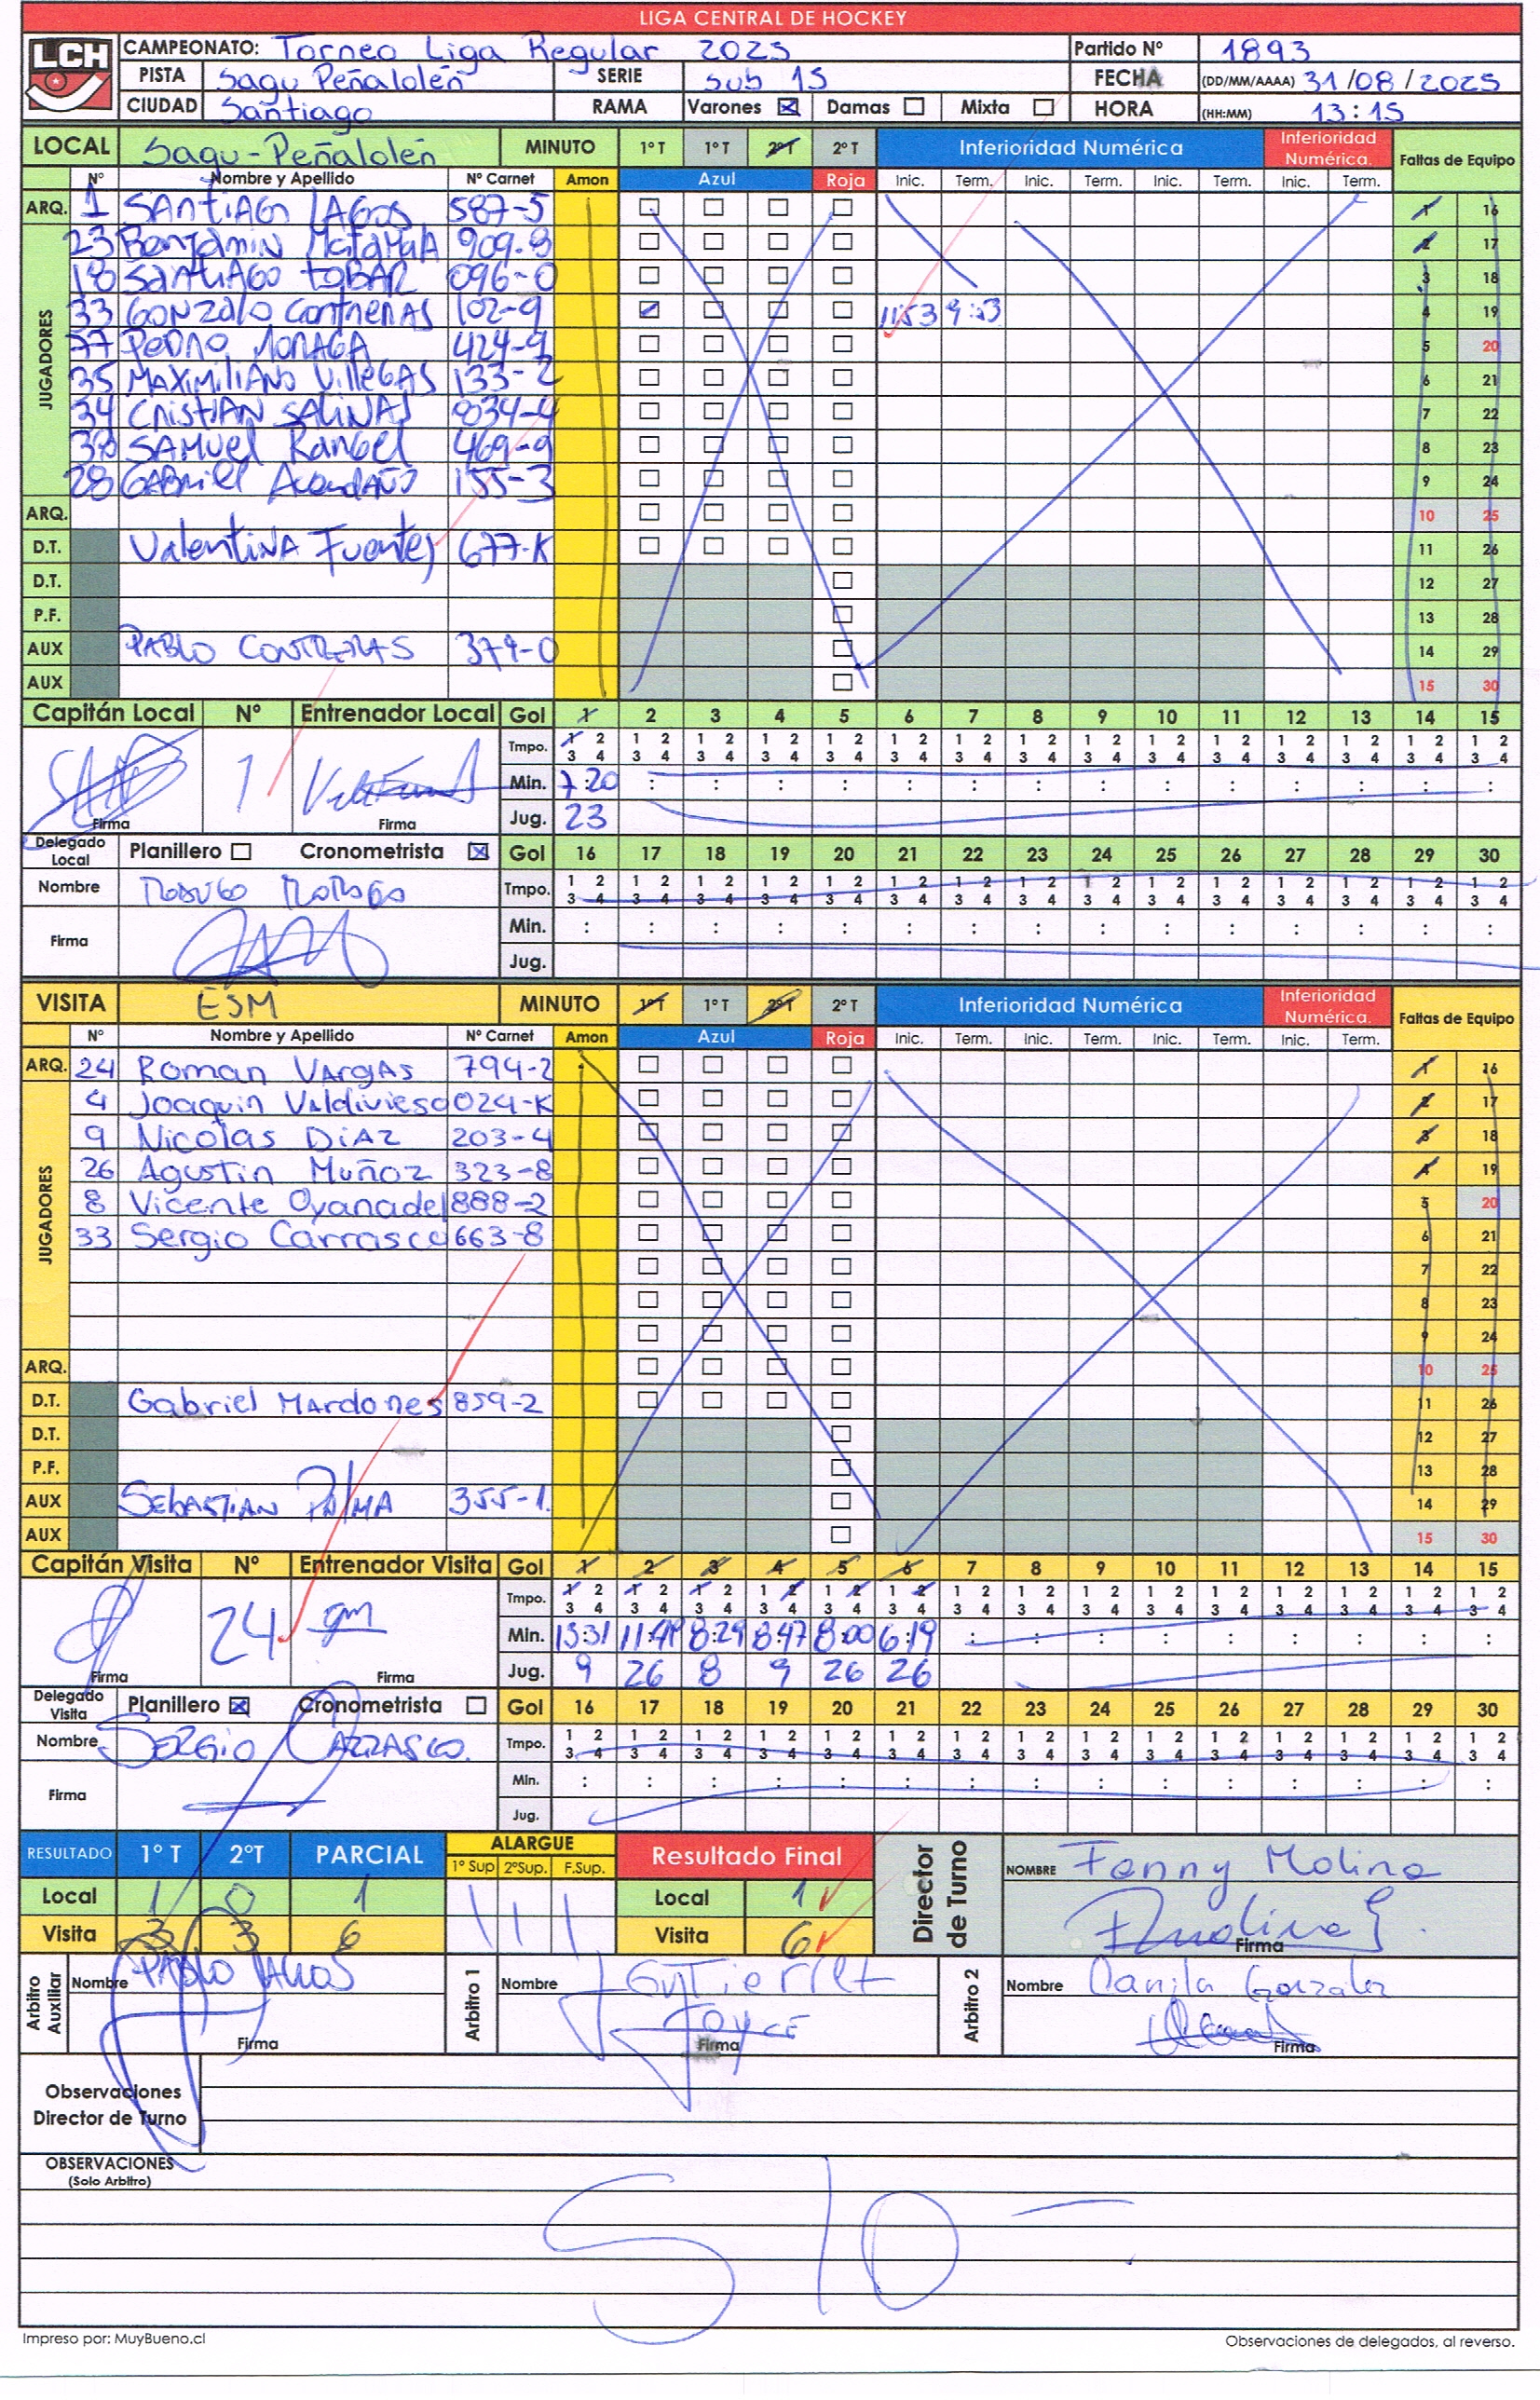 LIGA CENTRAL DE HOCKEY
LCH
CAMPEONATO: Torneo Liga Regular 2025 Partido Nº 1893
PISTA Sagu Peñalolén SERIE Sub 15 FECHA (DD/MM/AAAA) 31/08/2025
CIUDAD Santiago RAMA Varones Damas Mixta HORA (HH:MM) 13:15
LOCAL Sagu-Peñalolén MINUTO 1º T 1º T 2º T 2º T Inferioridad Numérica Inferioridad Numérica. Faltas de Equipo
Nº Nombre y Apellido Nº Carnet Amon Azul Roja Inic. Term. Inic. Term. Inic. Term. Inic. Term.
ARQ. 1 SANTIAGO LAGOS 587-5 1 16
JUGADORES
23 Benjamin MataMalA 909-8 2 17
18 SANTIAGO TOBAR 096-0 3 18
33 GONZALO ContreRAS 102-9 11:53 9:53 4 19
77 PEDRO 424-9 5 20
35 MAXIMILIANO VillEGAS 133-2 6 21
34 CRISTIAN SALINAS 8034-4 7 22
38 SAMUEL RANGEL 469-9 8 23
28 GABRIEL AvendAÑO 155-3 9 24
ARQ. 10 25
D.T. ValentiNA Fuentes 677-K 11 26
D.T. 12 27
P.F. 13 28
AUX PABLO CONTRERAS 379-0 14 29
AUX 15 30
Capitán Local Nº Entrenador Local Gol 1 2 3 4 5 6 7 8 9 10 11 12 13 14 15
Tmpo. 1 2 1 2 1 2 1 2 1 2 1 2 1 2 1 2 1 2 1 2 1 2 1 2 1 2 1 2 1 2
3 4 3 4 3 4 3 4 3 4 3 4 3 4 3 4 3 4 3 4 3 4 3 4 3 4 3 4 3 4
1 Min. 7:20 : : : : : : : : : : : : : :
Firma Firma Jug. 23
Delegado Local Planillero Cronometrista Gol 16 17 18 19 20 21 22 23 24 25 26 27 28 29 30
Nombre Tmpo. 1 2 1 2 1 2 1 2 1 2 1 2 1 2 1 2 1 2 1 2 1 2 1 2 1 2 1 2 1 2
3 4 3 4 3 4 3 4 3 4 3 4 3 4 3 4 3 4 3 4 3 4 3 4 3 4 3 4 3 4
Firma Min. : : : : : : : : : : : : : : :
Jug.
VISITA ESM MINUTO 1º T 1º T 2º T 2º T Inferioridad Numérica Inferioridad Numérica. Faltas de Equipo
Nº Nombre y Apellido Nº Carnet Amon Azul Roja Inic. Term. Inic. Term. Inic. Term. Inic. Term.
ARQ. 24 Roman VArgAs 794-2 1 16
JUGADORES
4 Joaquin Valdivieso 024-K 2 17
9 Nicolas DiAz 203-4 3 18
26 Agustin Muñoz 323-8 4 19
8 Vicente Oyanadel 888-2 5 20
33 Sergio Carrasco 663-8 6 21
7 22
8 23
9 24
ARQ. 10 25
D.T. Gabriel MArdones 859-2 11 26
D.T. 12 27
P.F. 13 28
AUX SEBASTIAN PALMA 355-1. 14 29
AUX 15 30
Capitán Visita Nº Entrenador Visita Gol 1 2 3 4 5 6 7 8 9 10 11 12 13 14 15
Tmpo. 1 2 1 2 1 2 1 2 1 2 1 2 1 2 1 2 1 2 1 2 1 2 1 2 1 2 1 2 1 2
3 4 3 4 3 4 3 4 3 4 3 4 3 4 3 4 3 4 3 4 3 4 3 4 3 4 3 4 3 4
24 gm Min. 13:31 8:29 8:47 8:00 6:19 : : : : : : : : :
Firma Firma Jug. 9 26 8 9 26 26
Delegado Visita Planillero Cronometrista Gol 16 17 18 19 20 21 22 23 24 25 26 27 28 29 30
Nombre SERGIO CARRASCO. Tmpo. 1 2 1 2 1 2 1 2 1 2 1 2 1 2 1 2 1 2 1 2 1 2 1 2 1 2 1 2 1 2
3 4 3 4 3 4 3 4 3 4 3 4 3 4 3 4 3 4 3 4 3 4 3 4 3 4 3 4 3 4
Firma Min. : : : : : : : : : : : : : : :
Jug.
RESULTADO 1º T 2ºT PARCIAL ALARGUE 1º Sup 2ºSup. F.Sup. Resultado Final Director de Turno NOMBRE Fanny Molina
Local 1 0 1 Local 1
Visita 3 3 6 Visita 6 Firma
Arbitro Auxiliar Nombre PABLO Arbitro 1 Nombre GuTierrez Arbitro 2 Nombre Danila Gonzalez
Firma Joyce Firma Firma
Observaciones
Director de Turno
OBSERVACIONES
(Solo Arbitro)
S/O -
Impreso por: MuyBueno.cl Observaciones de delegados, al reverso.